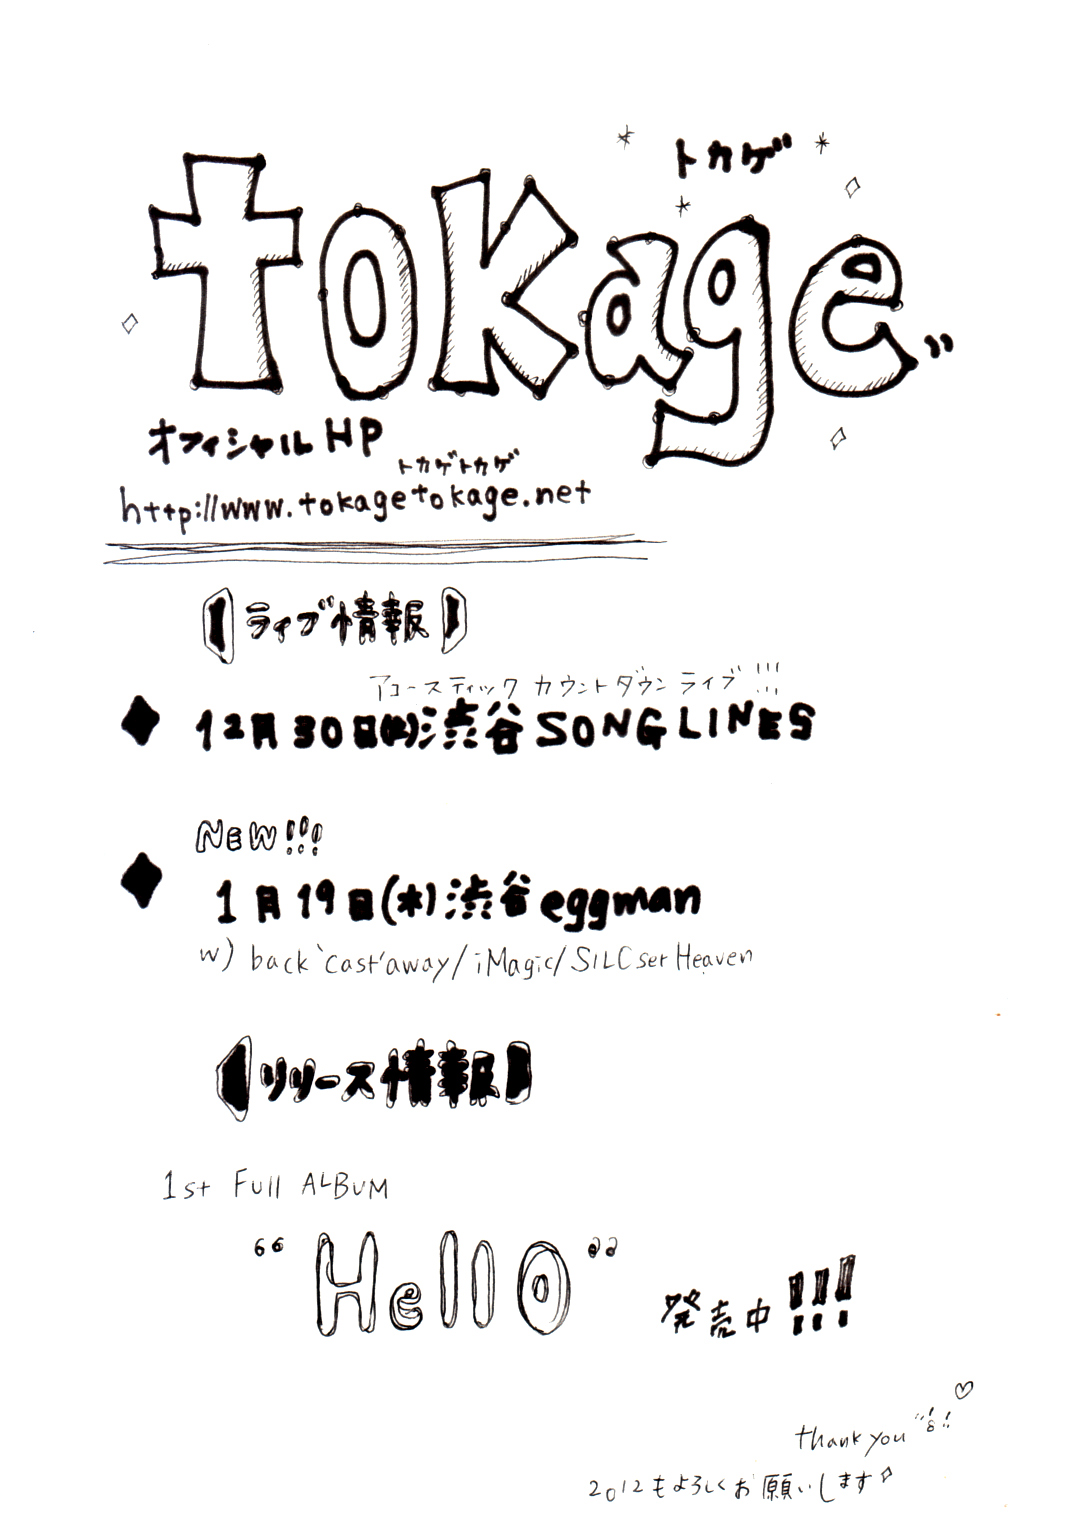 トカゲ
tokage"
オフィシャルHP
トカゲトカゲ
http://www.tokagetokage.net
【ライブ情報】
アコースティック カウントダウン ライブ!!!
◆ 12月30日( )渋谷 SONG LINES
NEW!!!
◆ 1月19日(木)渋谷 eggman
w) back 'cast' away/iMagic/SILC set Heaven
【リリース情報】
1st Full ALBUM
“Hello” 発売中!!!
thank you"!! ♡
2012もよろしくお願いします